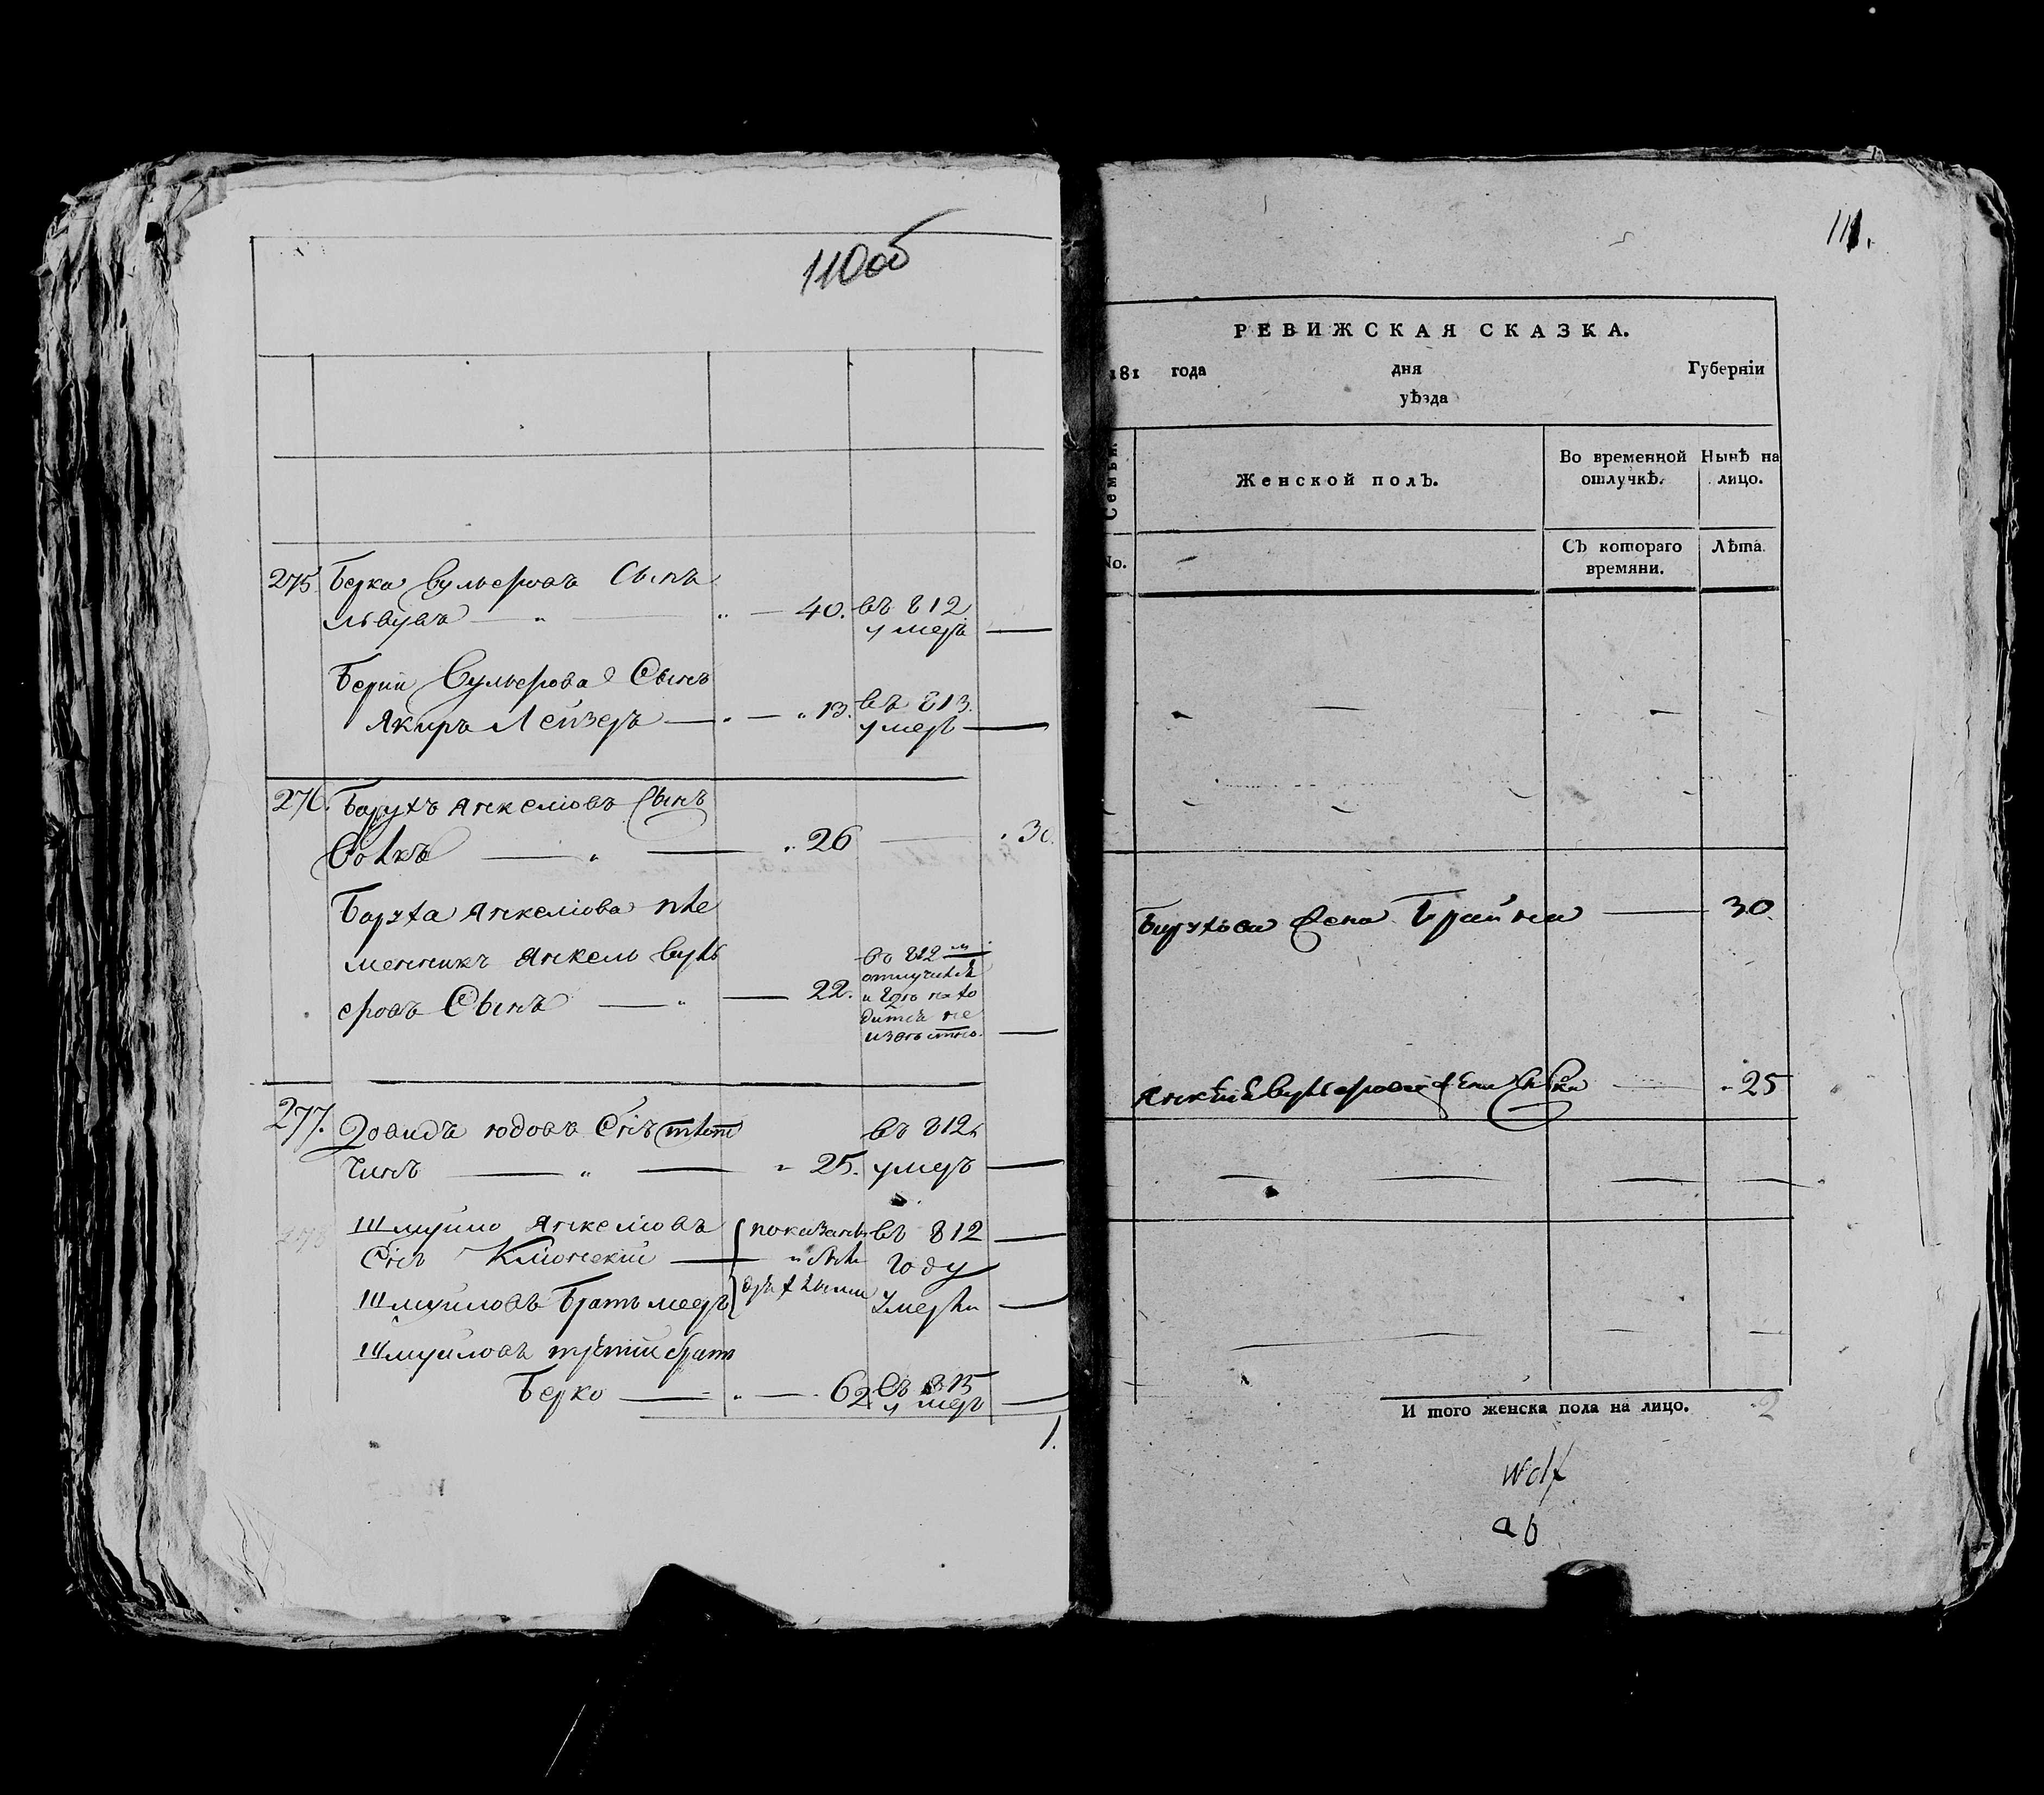 110об
275. Берка Вульеровъ Сынъ
— 40. въ 812
умеръ —
Берки Вульерова Сынъ
Якиръ Лейзеръ — 13. въ 813.
умеръ —
276. Барухъ Янкеліовъ Сынъ
Волкъ — 26 — 30.
Баруха Янкеліова пле
менникъ Янкель Вуль
еровъ Сынъ — 22.
во 812 м
отлучился
и где нахо
дится не
известно. —
277. Довидъ Юдовъ Снъ
чикъ — 25. въ 812
умеръ —
Шмуйло Янкеліовъ
Снъ Клионский —
Шмуйловъ братъ мееръ
показаны
въ 812 —
году
умерли —
Шмуйловъ третий братъ
Берко — 62 въ 813
умеръ —
1.
111.
РЕВИЖСКАЯ СКАЗКА.
181 года дня Губерніи
уѣзда
Семьи.
Женской полъ.
Во временной отлучкѣ.
Нынѣ на лицо.
No.
Съ котораго времяни.
Лѣта.
Барухова жена Брайна — 30.
Янкеля Вульерова жена — 25
И того женска пола на лицо. 2
Wolf
ab